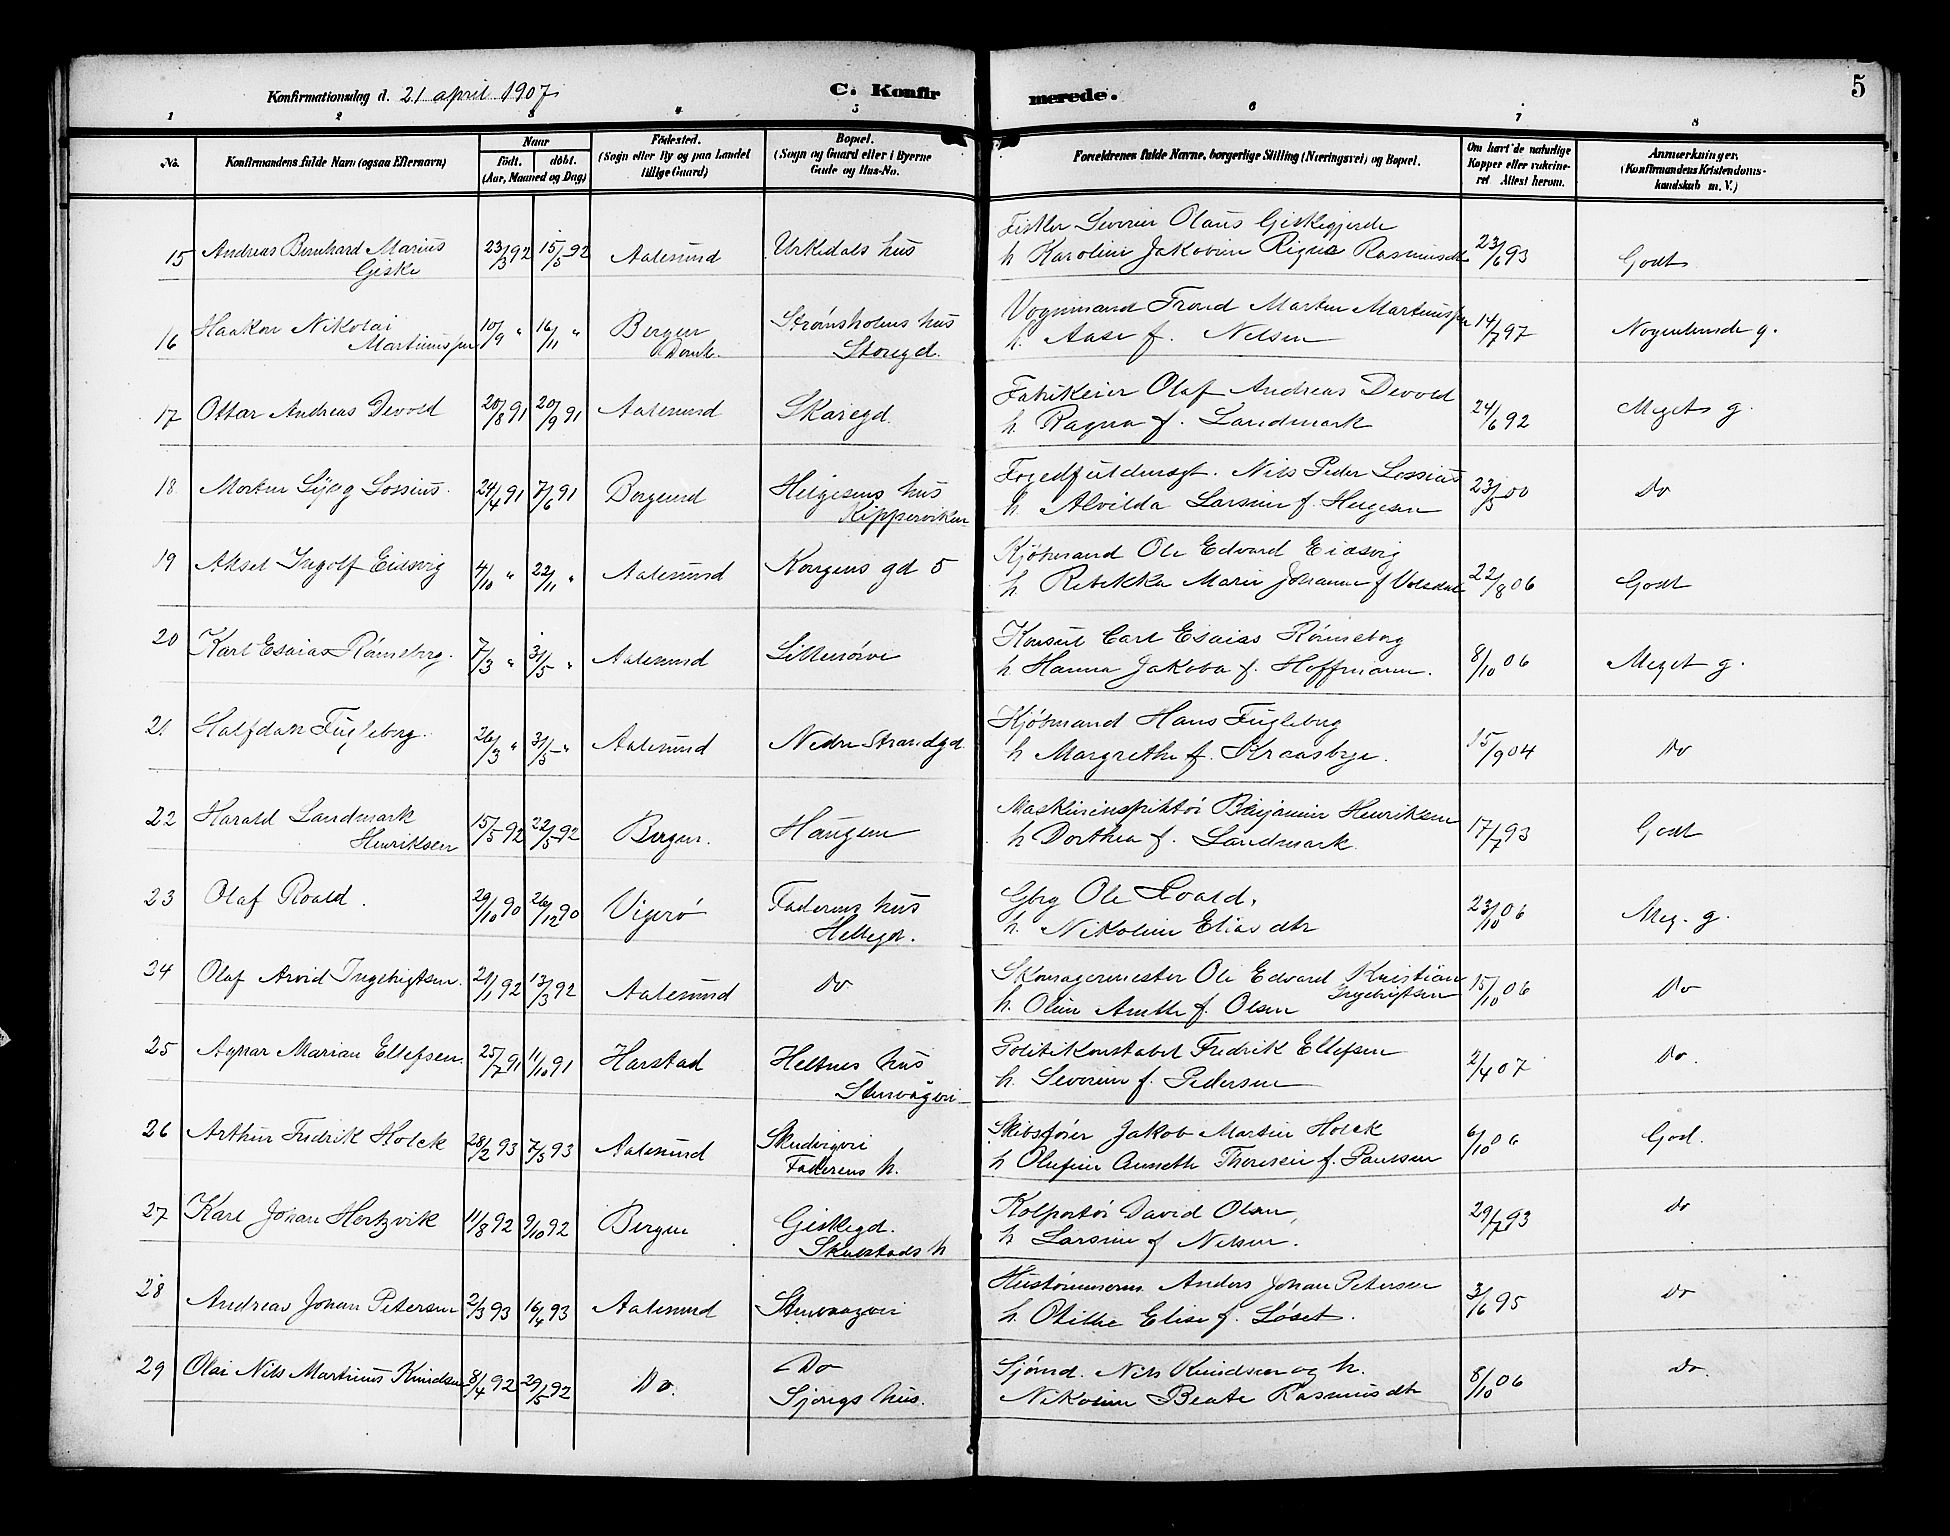 Konfirmationsdag d. 21 april 1907
C. Konfirmerede.
5
1 2 3 4 5 6 7 8
No.
Konfirmandens fulde Navn (ogsaa Efternavn)
Naar
født. døbt.
(Aar, Maaned og Dag)
Fødested.
(Sogn eller By og paa Landet
tillige Gaard)
Bopæl.
(Sogn og Gaard eller i Byerne
Gade og Hus-No.
Forældrenes fulde Navne, borgerlige Stilling (Næringsvei) og Bopæl.
Om havt de naturlige
Kopper eller vakcine-
ret Attest herom.
Anmærkninger.
(Konfirmandens Kristendoms-
kundskab m. V.)
15 Andreas Bernhard Marius Giske 23/3 92 15/5 92 Aalesund Urkedals hus
Fisker Severin Olaus Giskegjerde
h. Karoline Jakobine Rasmusdtr 23/6 93 Godt
16 Haakon Nikolai Martinussen 10/9 " 16/11 " Bergen Domk. Strømsholms hus Storegd.
Vognmand Trond Martin Martinussen
h. Aase f. Nelsen 14/7 97 Nogenlunde g.
17 Ottar Andreas Devold 20/8 91 20/9 91 Aalesund Skaregd.
Fabrikeier Olaf Andreas Devold
h. Ragna f. Landmark 24/6 92 Meget g.
18 Morten Lossius 24/4 91 7/6 91 Borgund Helgesens hus Kipperviken
Nils Peder Lossius
h. Alvilda Larsine f. Helgesen 23/5 00 Do
19 Aksel Ingolf Eidsvig 4/10 " 22/11 " Aalesund Kongens gd 5
Kjøbmand Ole Edvard Eidsvig
h. Rebekka Marie Johanne f. Volsdal 22/8 06 Godt
20 Karl Esaias Rønneberg. 7/3 " 31/5 " Aalesund
Konsul Carl Esaias Rønneberg
h. Hanna Jakoba f. Hoffmann. 8/10 06 Meget g.
21 Halfdan Fugleberg. 26/3 " 31/5 " Aalesund Nedre Strandgd.
Kjøbmand Hans Fugleberg
h Margrethe f. Kraasbye. 15/9 04 Do
22 Harald Landmark Henriksen 15/5 92 22/5 92 Bergen. Haugen
Maskininspektør Benjamin Henriksen
h Dorthea f. Landmark. 17/7 93 Godt
23 Olaf Roald. 29/10 90 26/12 90 Vigerø Faderens hus Hellegd.
Gbrg Ole Roald.
h. Nikoline Eliasdtr 23/10 06 Meg. g.
24 Olaf Arvid Ingebrigtsen. 21/1 92 13/3 92 Aalesund Do
Skomagermester Ole Edvard Kristian Ingebrigtsen
h. Oline Anethe f. Olsen 15/10 06 Do
25 Agnar Marian Ellefsen. 25/7 91 11/10 91 Harstad Heltnes hus Stenvågvei
Politikonstabel Fredrik Ellefsen
h. Severine f. Pedersen 2/4 07 Do.
26 Arthur Fredrik Holck 28/2 93 7/5 93 Aalesund Faderens h.
Skibsfører Jakob Martin Holck
h Olufine Annethe f. Paulsen 6/10 06 God.
27 Karl Johan Hertzvik 11/8 92 9/10 92 Bergen Giskegd. Skuestads h
Kolportør David Olsen,
h Larsine f Nelsen. 29/7 93 do
28 Andreas Johan Petersen 2/3 93 16/4 93 Aalesund Stenvaagvei
Hustømmerm. Anders Johan Petersen
h. Otilie Elise f. Løset. 3/6 95 do
29 Olai Nils Martinus Knudsen 8/4 92 29/5 92 Do. Do Sjongs hus.
Sjømd. Nils Knudsen og h.
Nikoline Beate Rasmusdtr 8/10 06 do